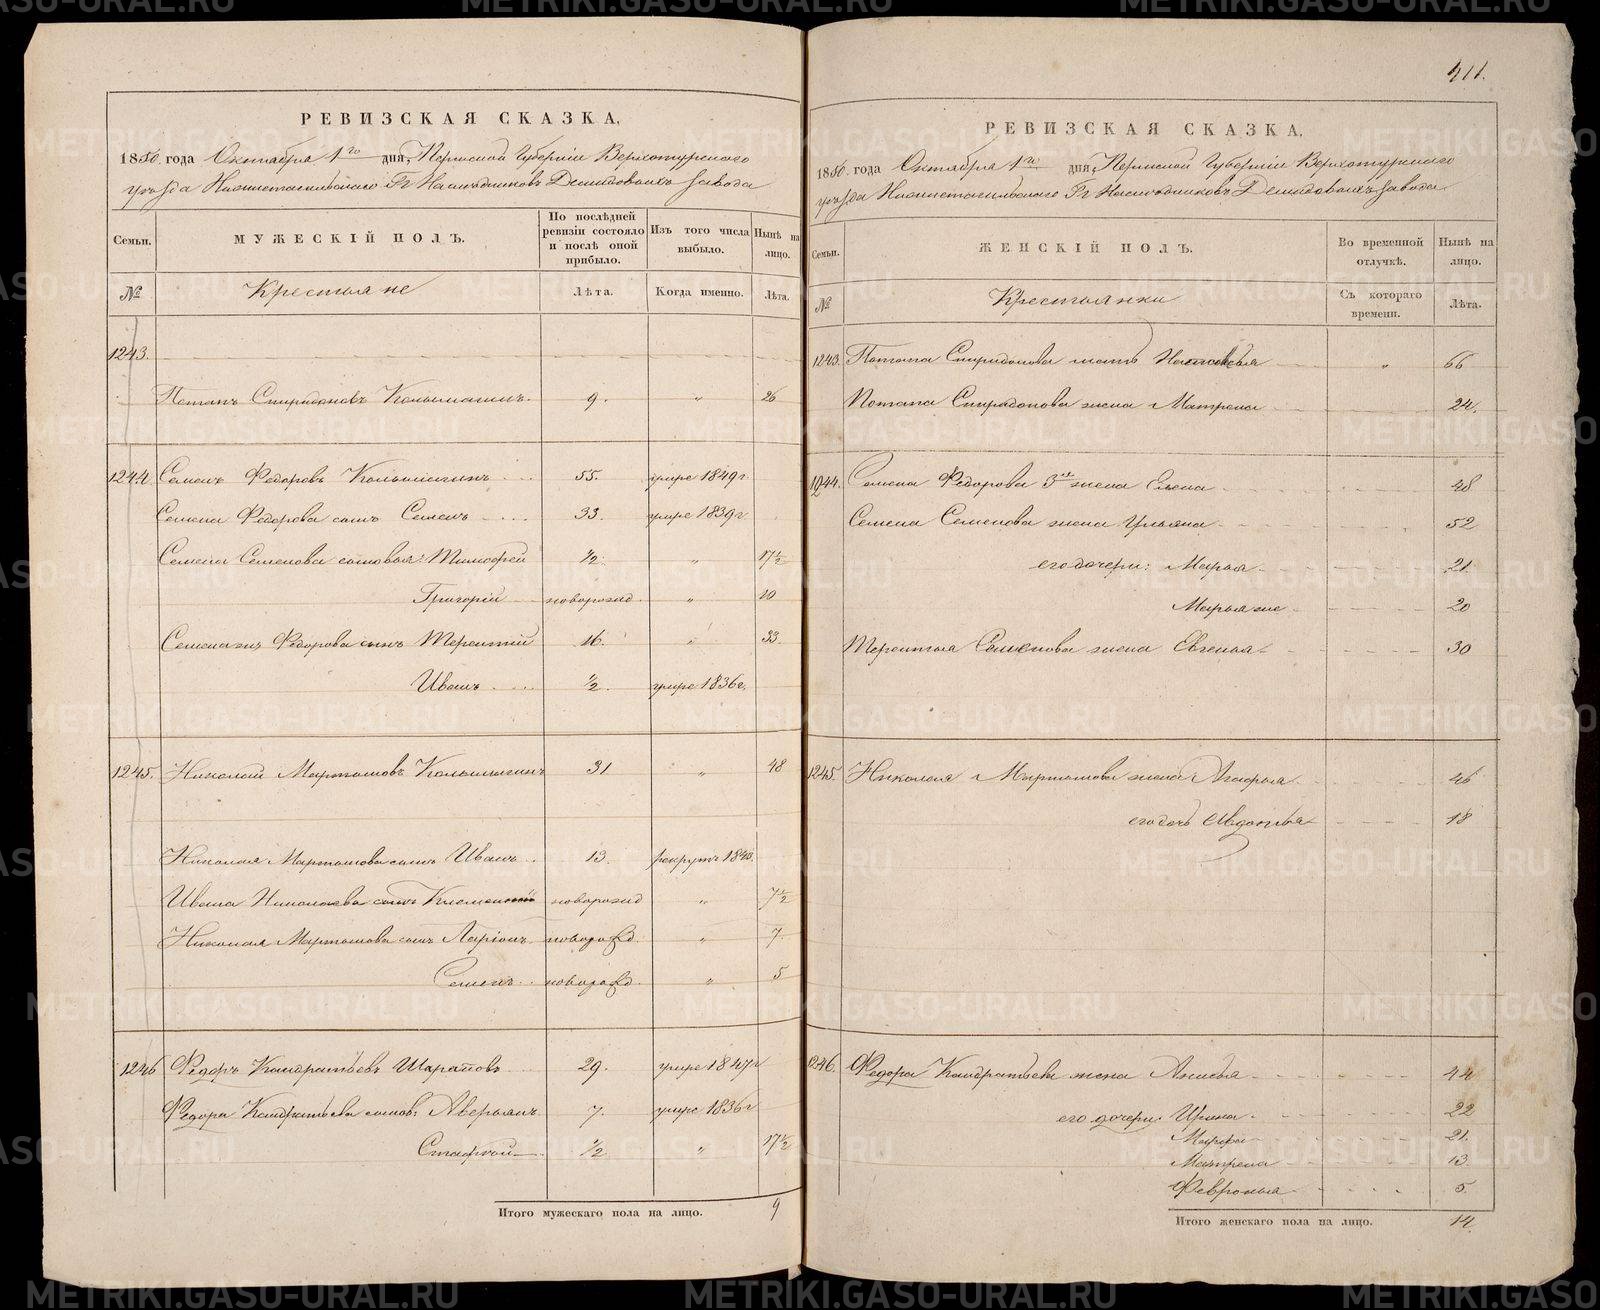 РЕВИЗСКАЯ СКАЗКА,
1850. года Октября 1го дня, Пермской Губерніи Верхотурского
уѣзда Нижнетагильского Гг Наслѣдниковъ Демидовыхъ завода
Семьи. МУЖЕСКІЙ ПОЛЪ. По послѣдней ревизіи состояло и послѣ оной прибыло. Изъ того числа выбыло. Нынѣ на лицо.
№ Крестьяне Лѣта. Когда именно. Лѣта.
1243.
Потапъ Спиридоновъ 9. " 26
1244. Семенъ Федоровъ 55. умре 1849 г
Семена Федорова сынъ Семенъ 33. умре 1839 г
Семена Семенова сыновья: Тимофей ½. " 17½
Григорій новорожд. " 10
Семена же Федорова сынъ Терентій 16. " 33.
Иванъ ½. умре 1836 г.
1245. Николай Мартыновъ 31 " 48
Николая Мартынова сынъ Иванъ 13. рекрутъ 1845.
Ивана Николаева сынъ новорожд " 7½
Николая Мартынова сынъ Ларіонъ новорожд. " 7.
Семенъ новорожд. " 5
1246 Федоръ Кондратьевъ Шараповъ 29. умре 1847 г
Федора Кондратьева сынов: Аверьянъ 7. умре 1836 г
½ " 17½
Итого мужескаго пола на лицо. 9
411.
РЕВИЗСКАЯ СКАЗКА,
1850. года Октября 1го дня, Пермской Губерніи Верхотурского
уѣзда Нижнетагильского Гг Наслѣдниковъ Демидовыхъ завода
Семьи. ЖЕНСКІЙ ПОЛЪ. Во временной отлучкѣ. Нынѣ на лицо.
№ Крестьянки Съ котораго времени. Лѣта.
1243. Потапа Спиридонова мать " 66
Потапа Спиридонова жена Матрена 24.
1244. Семена Федорова 3я жена Елена 48
Семена Семенова жена Ульяна 52
его дочери: Марья 21.
Марья же 20
Терентья Семенова жена Евгенья 30
1245. Николая Мартынова жена Агафья 46
его дочь Авдотья 18
1246. Федора Кондратьева жена Анисья 44
его дочери: Ирина 22
Марфа 21.
Матрена 13.
Февронья 5.
Итого женскаго пола на лицо. 14.
METRIKI.GASO-URAL.RU